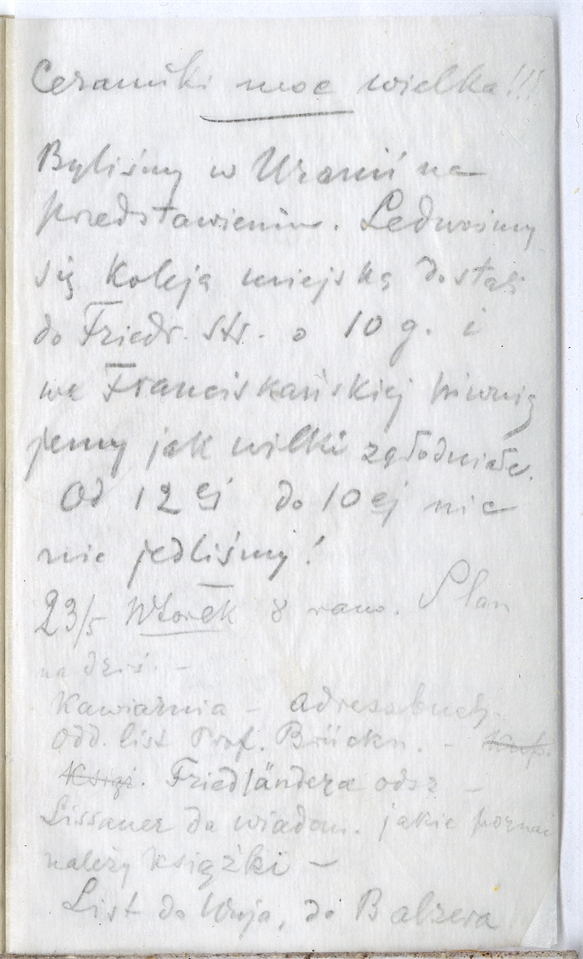 Ceramiki moc wielka!!!
Byliśmy w Uranii na
przedstawieniu. Ledwośmy
się koleją miejską dostali
do Friedr. str. o 10 g. i
we Franciskańskiej piwnicy
jemy jak wilki zgłodniałe.
Od 12 ej do 10 ej nic
nie jedliśmy!
23/5 Wtorek 8 rano. Plan
na dziś. -
Kawiarnia - Adressbuch.
Odd. list Prof. Brückn. -
Friedländera odsz -
Lissauer da wiadom. jakie poznać
należy książki -
List do Wuja, do Balzera